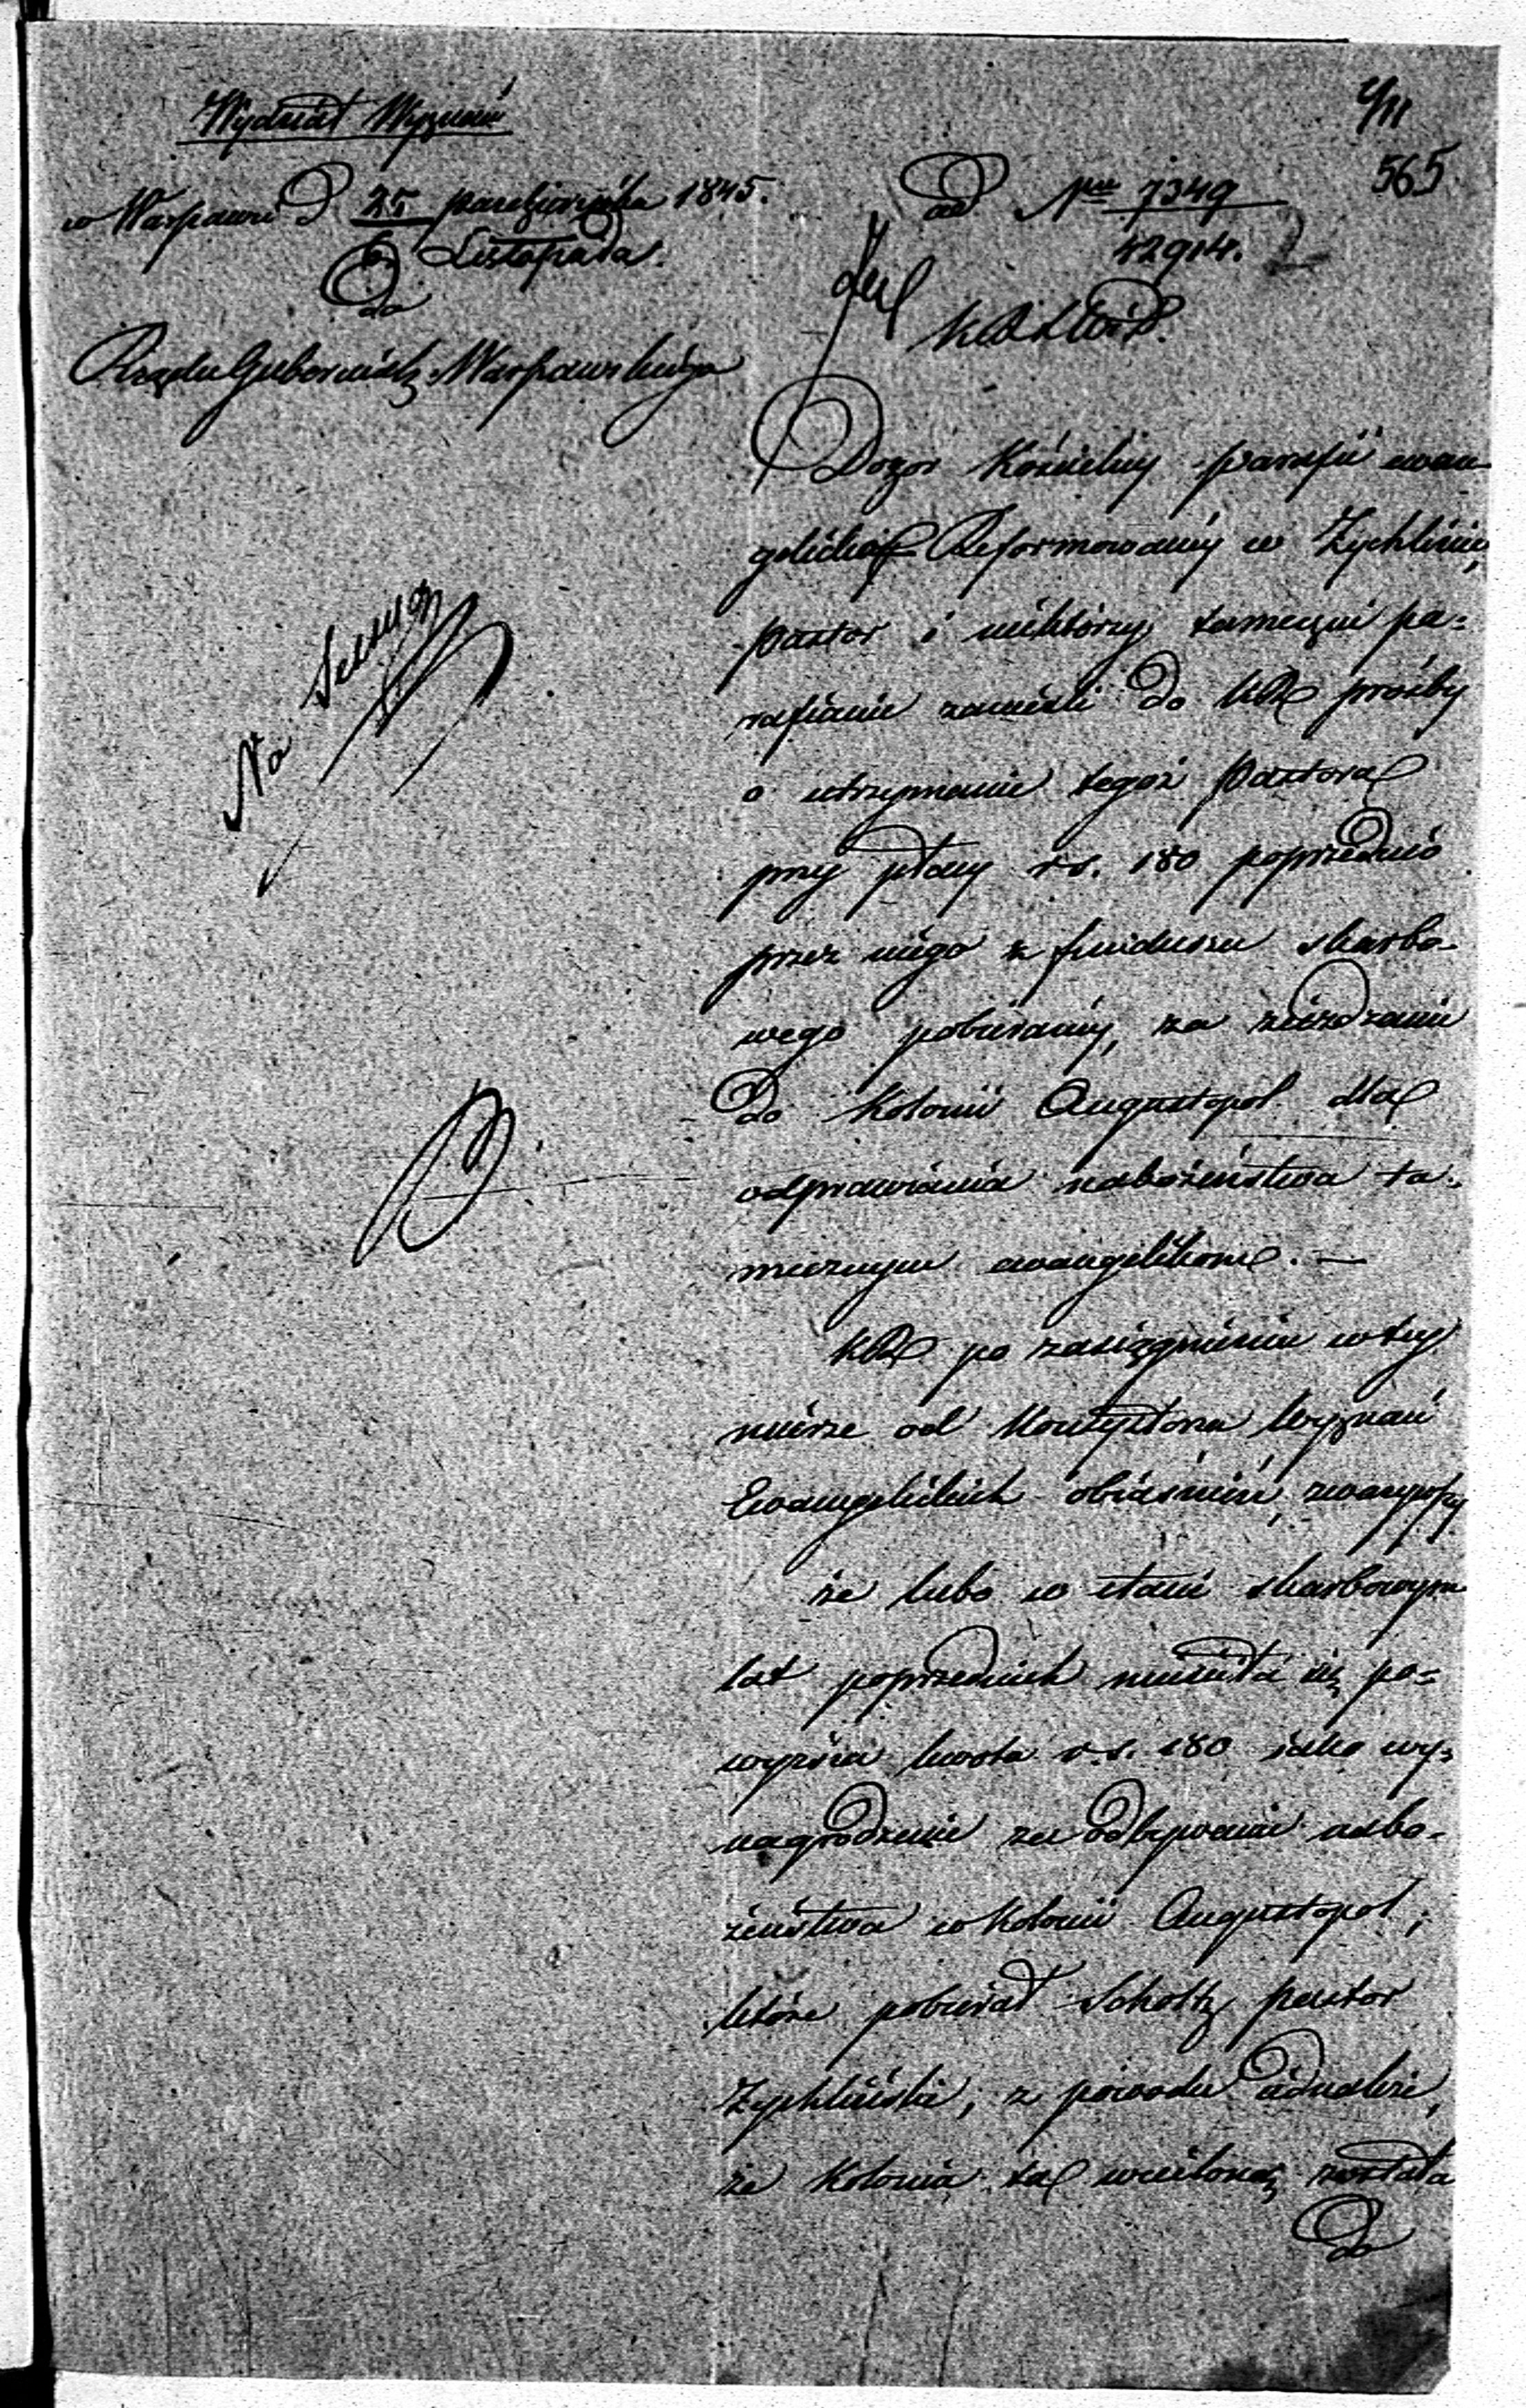 Wydział Wyznań
565
w Warszawie d 25 Października 1845.
6 Listopada.
ad Nru 7349
42914.
do
Rządu Gubernialn. Warszawskiego
Na Sessyą
Dozór Kościelny parafii ewan-
gelickiej Reformowanéj w Żychlinie,
Pastor i niektórzy tameczni pa-
rafianie zanieśli do KR prośby
o utrzymanie tegoż Pastora
przy płacy rs. 180 poprzednio
przez niego z funduszu skarbo-
wego pobieranéj, za zjeżdżanie
do Kolonii Augustopol dla
odprawiania nabożeństwa ta-
mecznym ewangelikom. —
KR po zasiągnieniu w téj
mierze od Konsystorza Wyznań
Ewangelickich objaśnień, zważywszy
że lubo w etacie skarbowym
lat poprzednich mieściła się po-
wyższa kwota rs. 180 jako wy-
nagrodzenie za odbywanie nabo-
żeństwa w Kolonii Augustopol,
które pobierał Scholtz pastor
Żychliński, z powodu jednakże,
że Kolonia ta wcieloną została
do